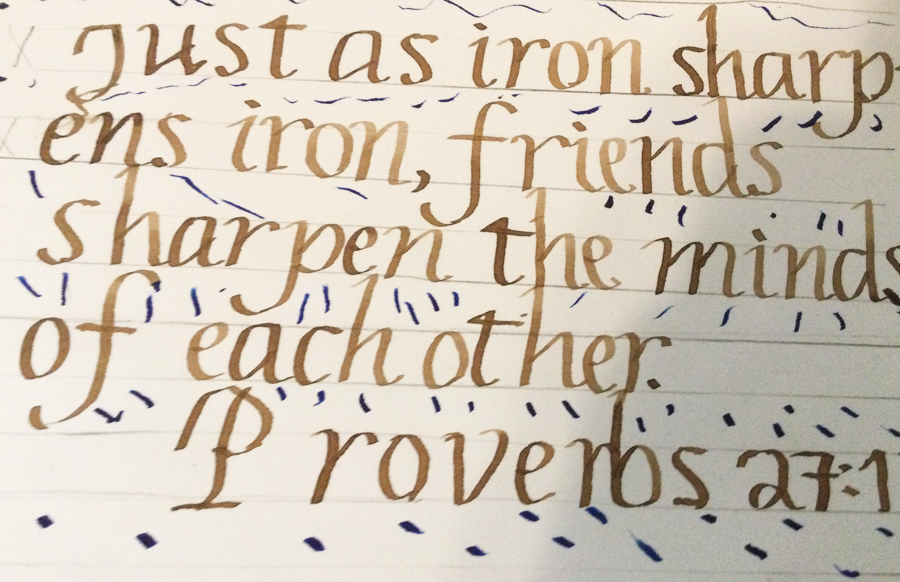 Just as iron sharp-
ens iron, friends
sharpen the minds
of each other.
Proverbs 27:1